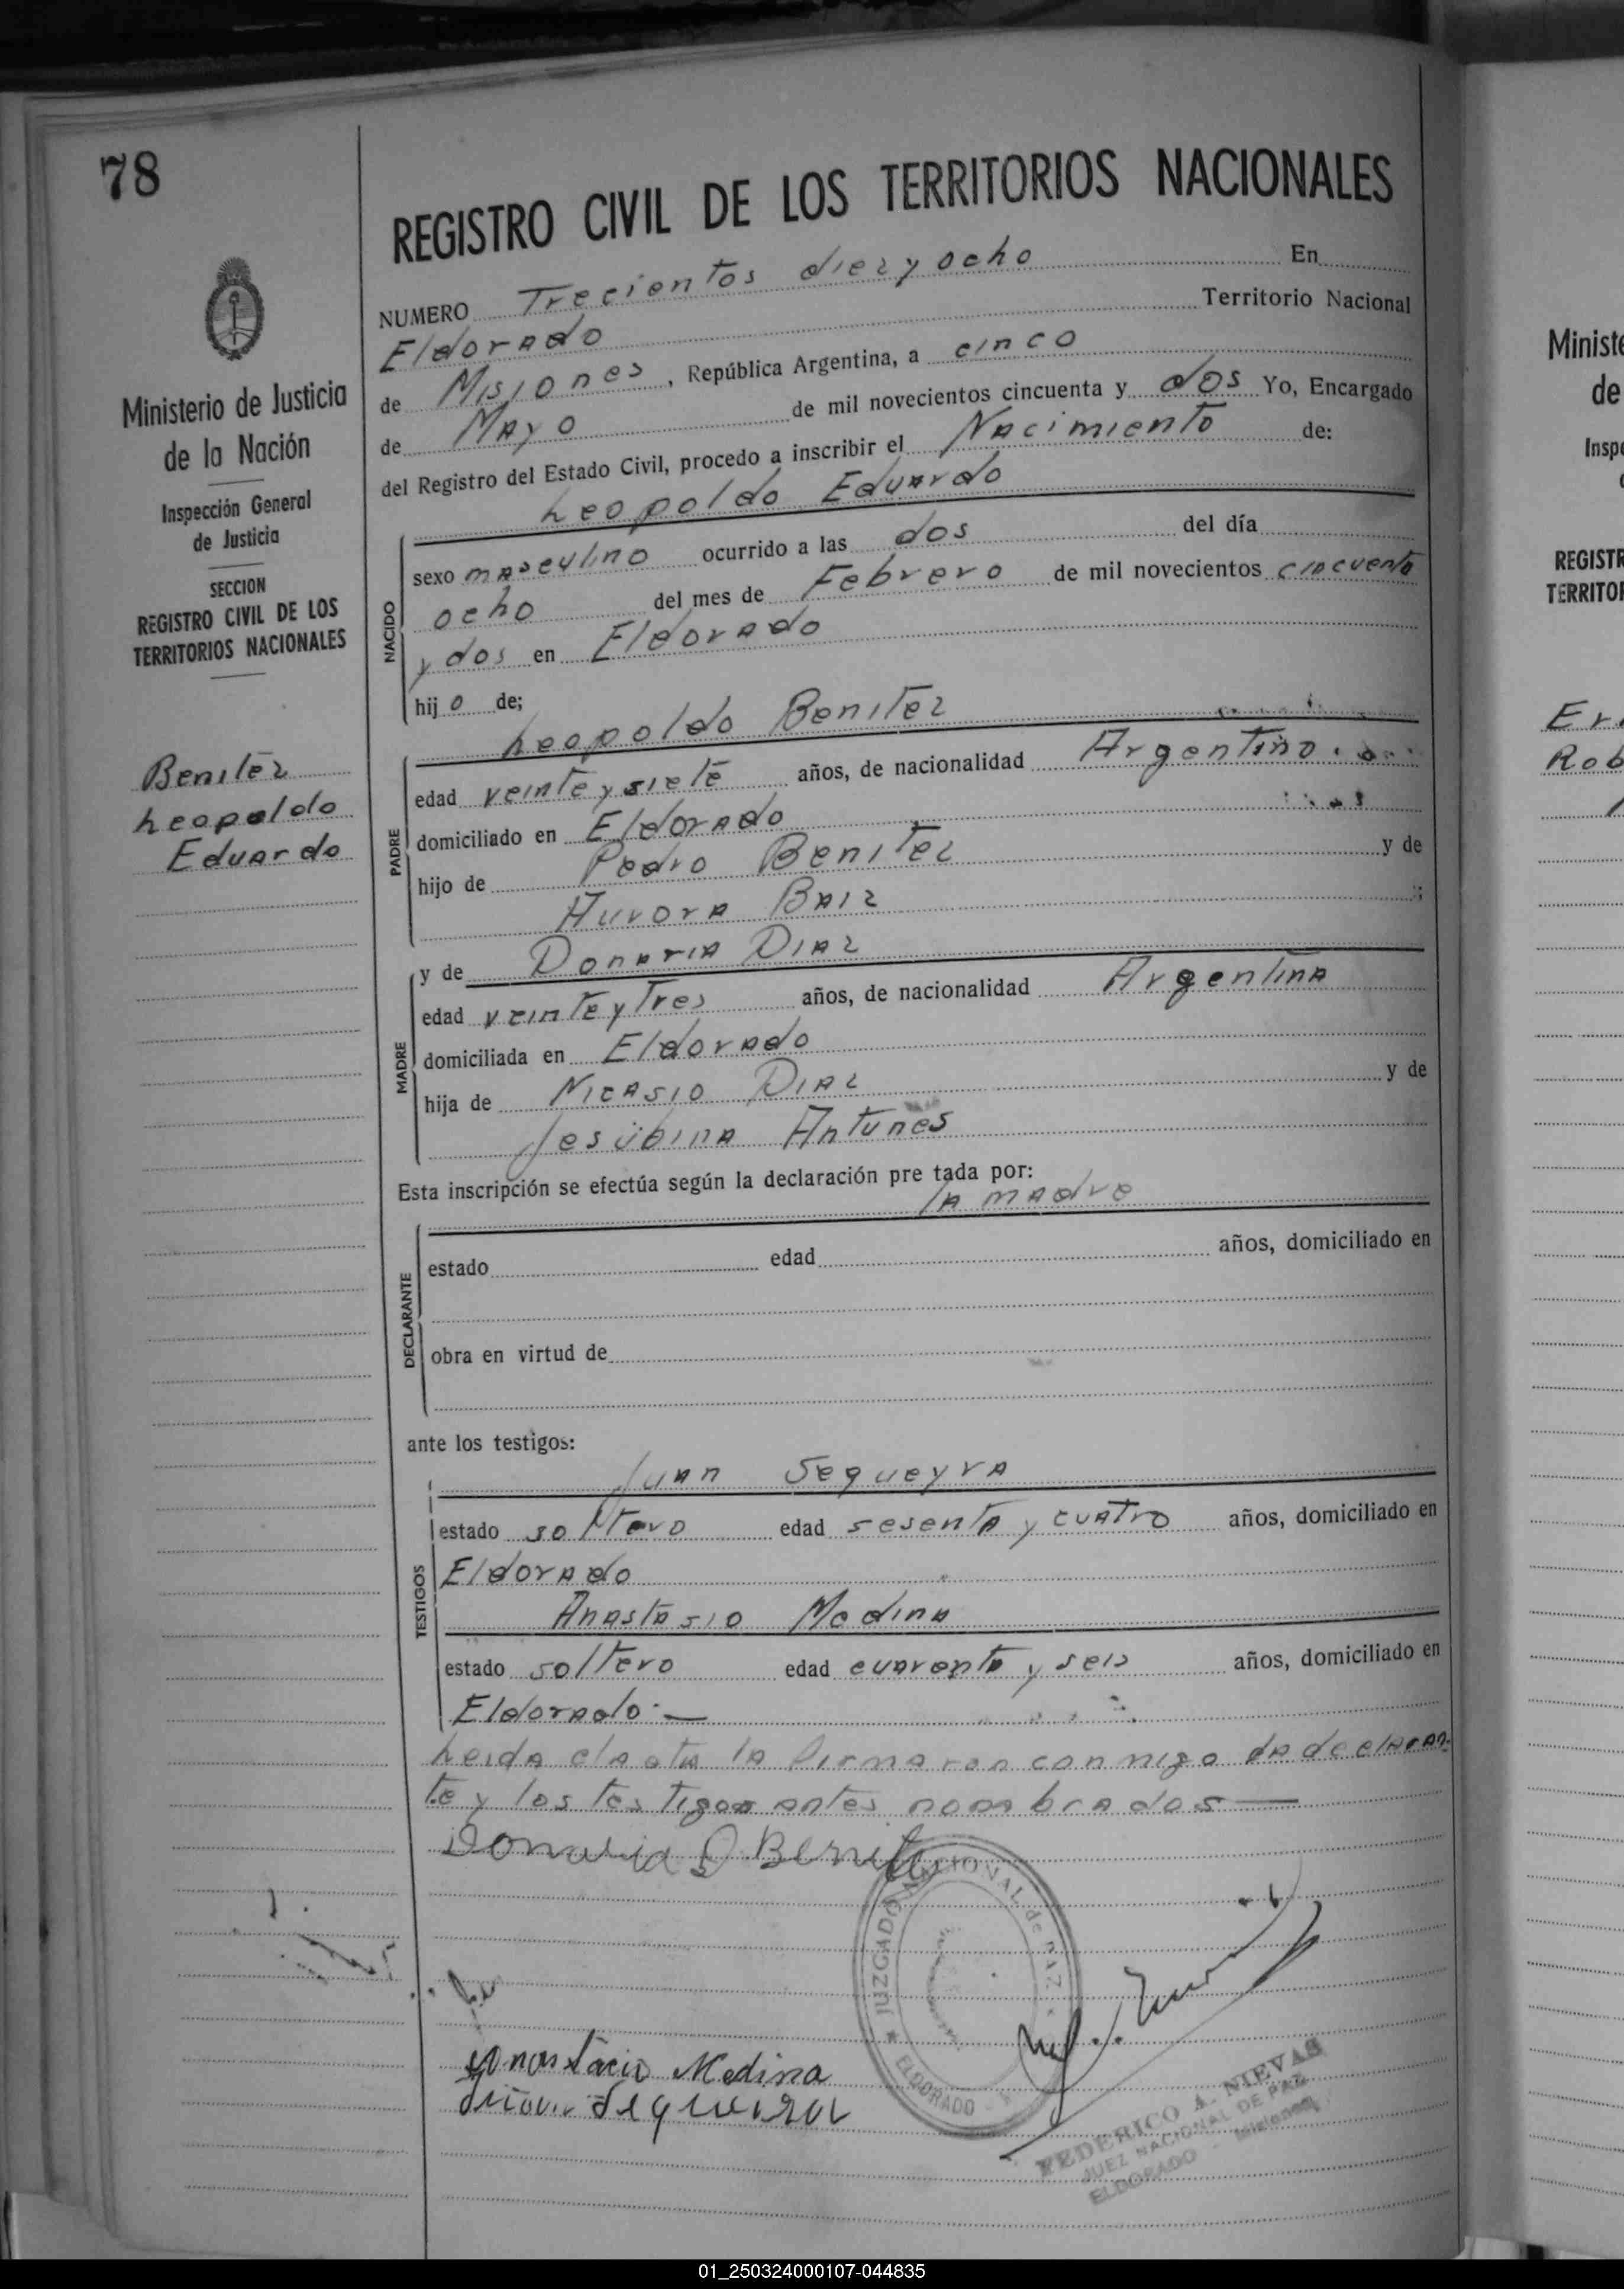 78
Ministerio de Justicia
de la Nación
Inspección General
de Justicia
SECCION
REGISTRO CIVIL DE LOS
TERRITORIOS NACIONALES
Benitez
Leopoldo
Eduardo
REGISTRO CIVIL DE LOS TERRITORIOS NACIONALES
NUMERO Trecientos diez y ocho En
Eldorado Territorio Nacional
de Misiones, República Argentina, a cinco
de Mayo de mil novecientos cincuenta y dos Yo, Encargado
del Registro del Estado Civil, procedo a inscribir el Nacimiento de:
Leopoldo Eduardo
NACIDO
sexo masculino ocurrido a las dos del día
ocho del mes de Febrero de mil novecientos cincuenta
y dos en Eldorado
hijo de;
Leopoldo Benitez
PADRE
edad veinte y siete años, de nacionalidad Argentino
domiciliado en Eldorado
hijo de Pedro Benitez y de
Aurora Baiz ;
y de Donaria Diaz
MADRE
edad veinte y tres años, de nacionalidad Argentina
domiciliada en Eldorado
hija de Nicasio Diaz y de
Jesubina Antunes
Esta inscripción se efectúa según la declaración pre tada por:
la madre
DECLARANTE
estado edad años, domiciliado en
obra en virtud de
ante los testigos:
Juan Sequeyra
TESTIGOS
estado soltero edad sesenta y cuatro años, domiciliado en
Eldorado
Anastasio Medina
estado soltero edad cuarenta y seis años, domiciliado en
Eldorado.—
Leida el acta la firmaron con migo la declaran-
te y los testigos antes nombrados—
Donaria D Benitez
JUZGADO NACIONAL de PAZ
ELDORADO
Anastacio Medina
Sequeira
FEDERICO A. NIEVAS
JUEZ NACIONAL DE PAZ
ELDORADO - Misiones
Ministe
de
Inspe
REGISTR
TERRITOR
Er
Rob
01_250324000107-044835